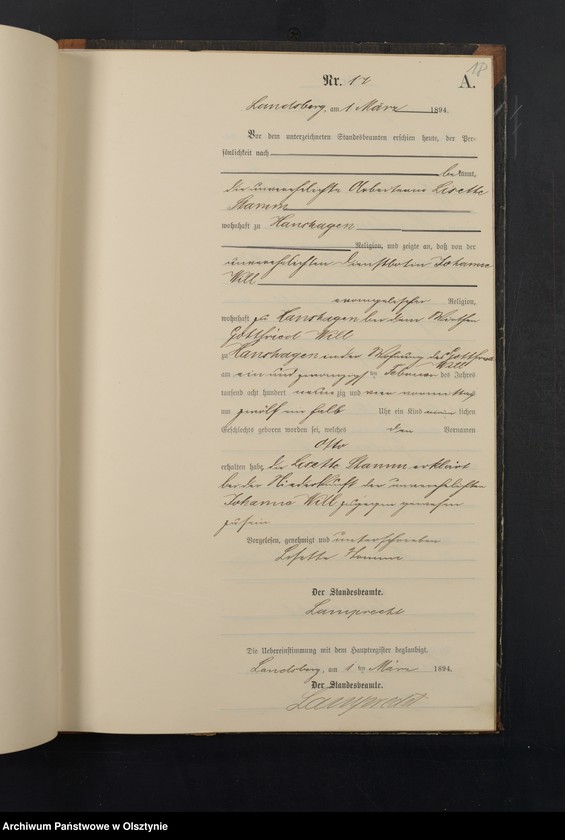 18
Nr. 17
A.
Landsberg, am 1 März 1894.
Vor dem unterzeichneten Standesbeamten erschien heute, der Per-
sönlichkeit nach
bekannt,
die unverehelichte Lisette
Stamm
wohnhaft zu Hanshagen
Religion, und zeigte an, daß von der
unverehelichten Dienstbotin Johanna
Will
evangelischer Religion,
wohnhaft zu Hanshagen bei dem Wirthen
Gottfried Will
zu Hanshagen in der Wohnung des Gottfried
Will
am ein und zwanzigsten Februar des Jahres
tausend acht hundert neunzig und vier Vormittag
um zwölf ein halb Uhr ein Kind männlichen
Geschlechts geboren worden sei, welches den Vornamen
Otto
erhalten habe, die Lisette Stamm erklärt
bei der Niederkunft der unverehelichten
Johanna Will zugegen gewesen
zu sein
Vorgelesen, genehmigt und unterschrieben
Lisette Stamm
Der Standesbeamte.
Lamprecht
Die Uebereinstimmung mit dem Hauptregister beglaubigt.
Landsberg, am 1 ten März 1894.
Der Standesbeamte.
Lamprecht
Archiwum Państwowe w Olsztynie